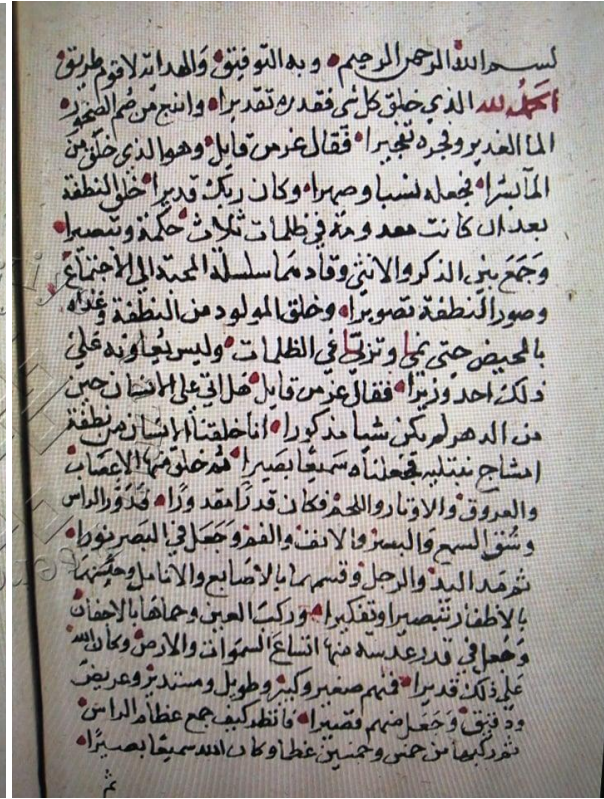 لبسم الله الرحمن الرحيم وبه التوفيق والهدايه لاقوم طريق
الحمد لله الذي خلق كل شى فقدره تقديرا وانبع من صم الصخور
الما الغدير وفجره تفجيرا فقال عز من قايل وهو الذي خلق من
المآ بشرا فجعله نسبا وصهرا وكان ربك قديرا خلق النطفة
بعد ان كانت معدومة في ظلمات ثلاث حكمة وتبصيرا
وجمع بين الذكر والانثي وقادهما سلسلة المحبة الي الاجتماع
وصور النطفة تصويرا وخلق المولود من النطفة وغداه
بالمحيض حتى نما وتربي في الظلمات وليس يعاونه علي
ذلك احد وزيرا فقال عز من قايل هل اتي على الانسان حين
من الدهر لم يكن شيا مذكورا انا خلقنا الانسان من نطفة
امشاج نبتليه فجعلناه سميعا بصيرا ثم خلق منها الاعصاب
والعروق والاوتار واللحم فكان قدرا مقدورا فدور الراس
وشق السمع والبصر والانف والفم وجعل في البصر نورا
ثم مد اليد والرجل وقسمهما بالاصابع والانامل
بالاظفار تبصيرا وتفكيرا وركب العين وحماها بالاجفان
وجعل في قدر عدسه منها اتساع السموات والارض وكان الله
علي ذلك قديرا فمنهم صغير وكبير وطويل ومستدير وعريض
ودقيق وجعل منهم قصيرا فانظر كيف جمع عظام الراس
ثم ركبها من خمس وخمسين عظما وكان الله سميعا بصيرا
ثم